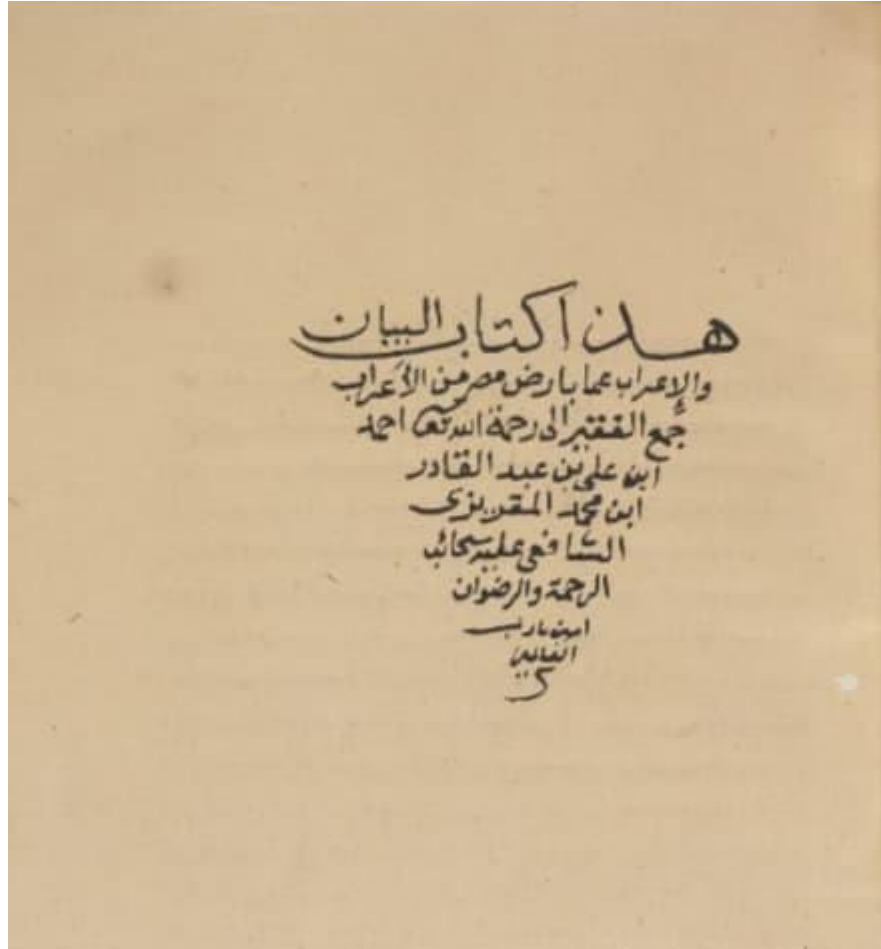 هذا كتاب البيان
والإعراب عما بارض مصر من الأعراب
جمع الفقير الى رحمة الله تعا احمد
ابن على بن عبد القادر
ابن محمد المقريزى
الشافعى عليه سحائب
الرحمة والرضوان
امين يارب
العالمين